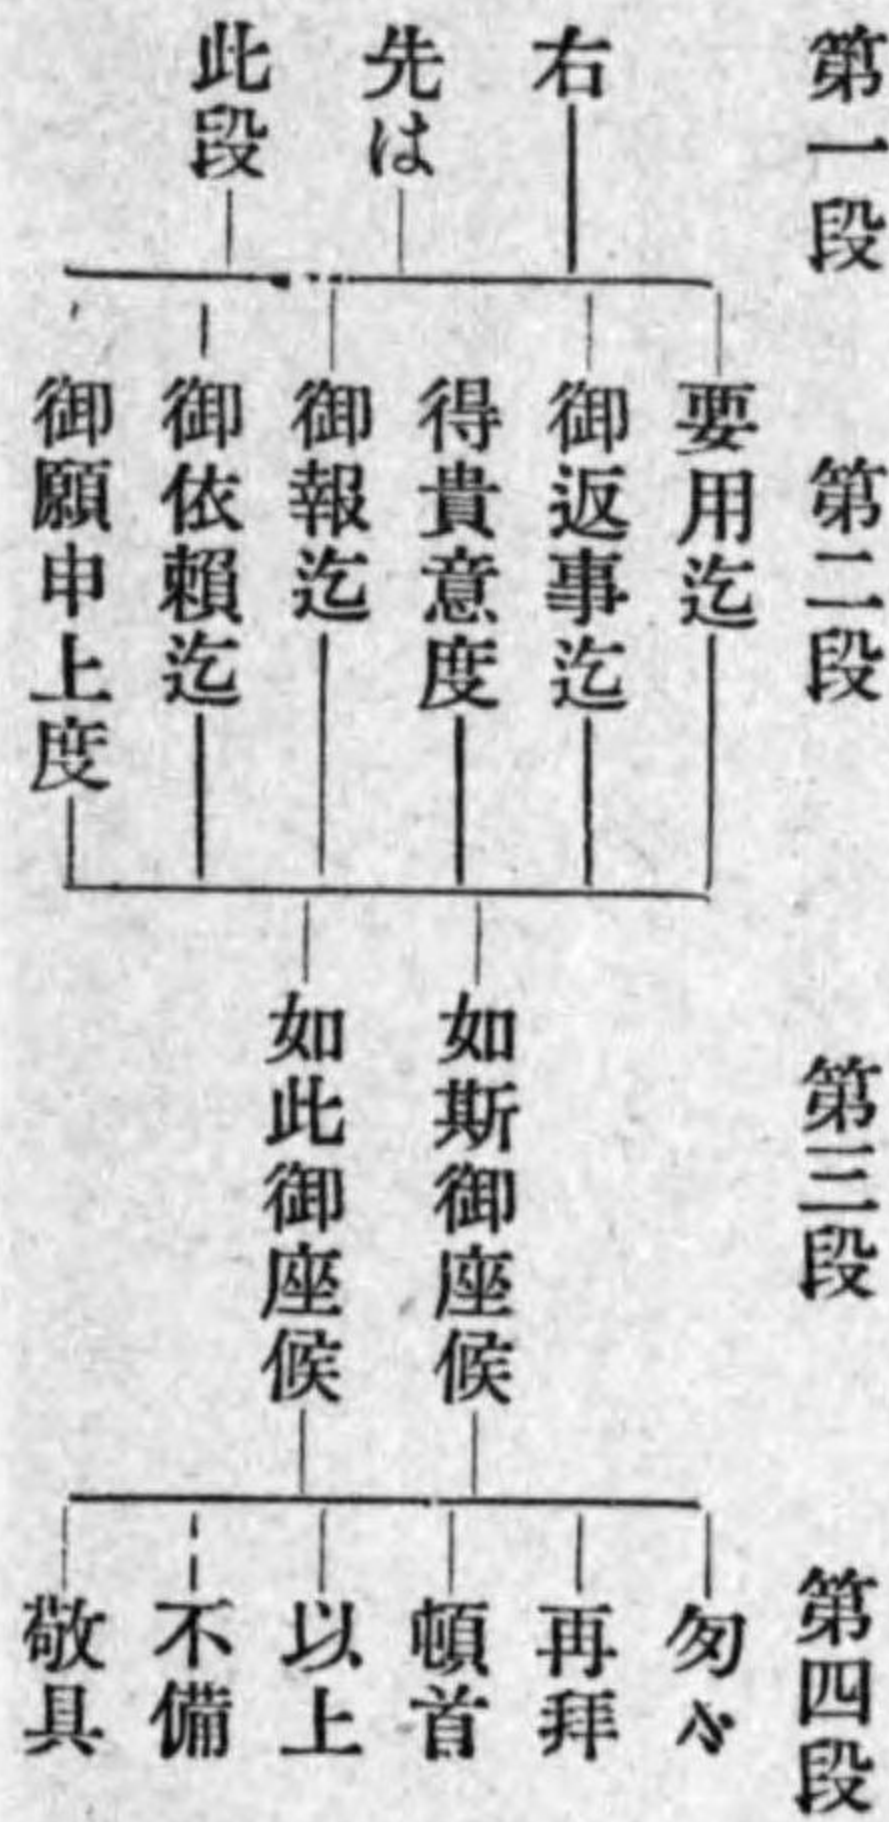 第一段
右
先は
此段
第二段
要用迄
御返事迄
得貴意度
御報迄
御依賴迄
御願申上度
第三段
如斯御座候
如此御座候
第四段
匆々
再拜
頓首
以上
不備
敬具